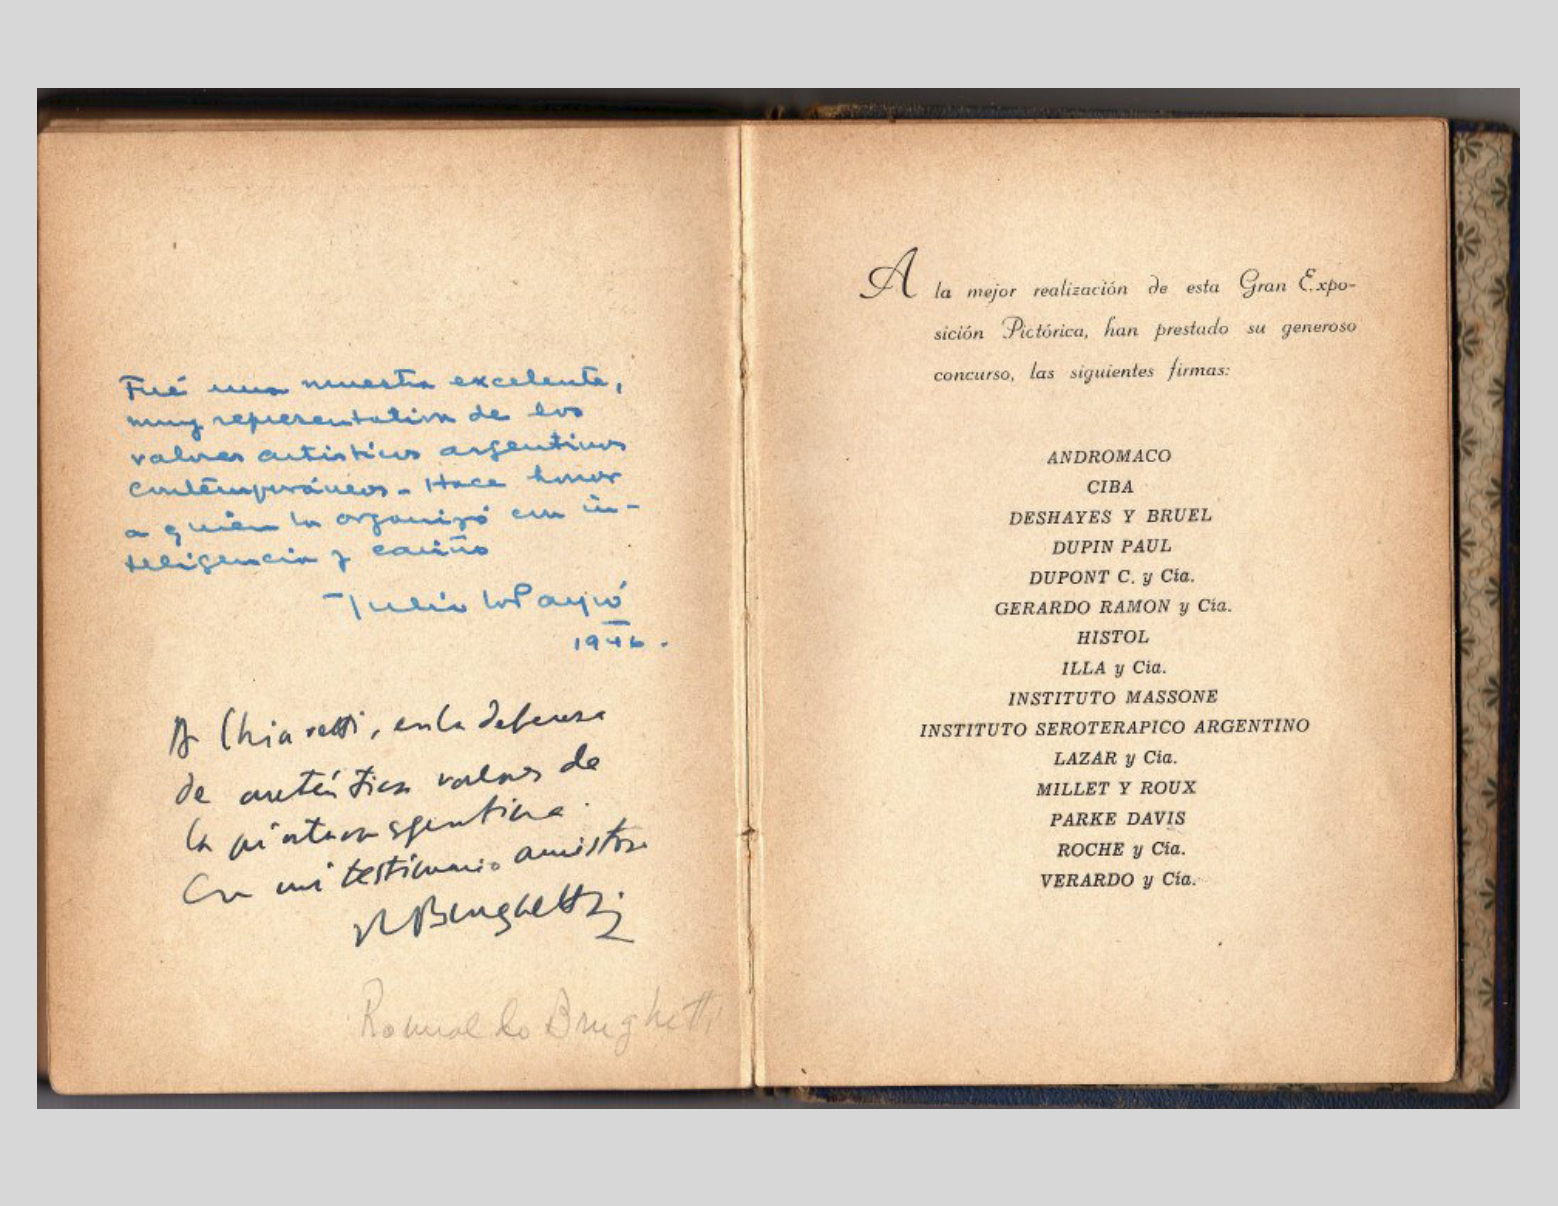 Fué una muestra excelente,
muy representativa de los
valores artísticos argentinos
contemporáneos. Hace honor
a quien la organizó con in-
teligencia y cariño
Julio Payró
1946.
A Chiaretti, en la defensa
de auténticos valores de
la pintura argentina
Con mi testimonio amistoso
R Brughetti
Romualdo Brughetti
A la mejor realización de esta Gran Expo-
sición Pictórica, han prestado su generoso
concurso, las siguientes firmas:
ANDROMACO
CIBA
DESHAYES Y BRUEL
DUPIN PAUL
DUPONT C. y Cía.
GERARDO RAMON y Cía.
HISTOL
ILLA y Cía.
INSTITUTO MASSONE
INSTITUTO SEROTERAPICO ARGENTINO
LAZAR y Cía.
MILLET Y ROUX
PARKE DAVIS
ROCHE y Cía.
VERARDO y Cía.